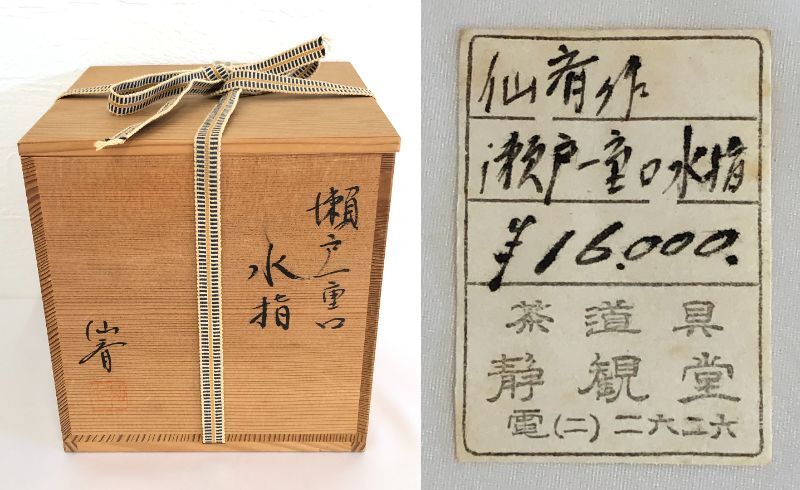 瀬戸一重口
水指
仙斎
仙斎作
瀬戸一重口水指
¥16.000.
茶道具
静観堂
電(二)二六二六